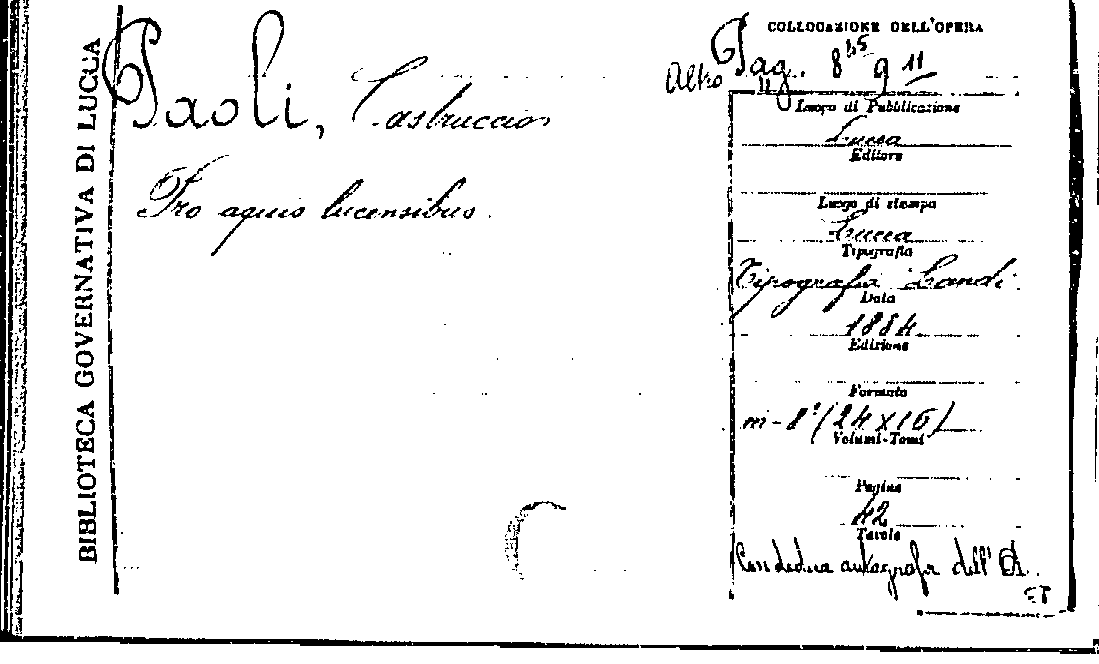 BIBLIOTECA GOVERNATIVA DI LUCCA
Paoli, Castruccio
Pro aquis lucensibus.
COLLOCAZIONE DELL'OPERA
Pag. 8
Altro 9 11
Luogo di Pubblicazione
Lucca
Editore
Luogo di stampa
Lucca
Tipografia
Tipografia Landi.
Data
1884
Edizione
Formato
in-8° (24 x 16)
Volumi-Tomi
Pagine
42
Tavole
Con dedica autografa dell'A.